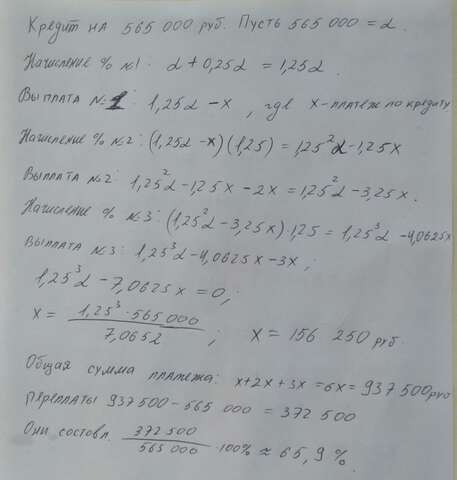 Кредит на 565 000 руб. Пусть 565 000 = α.
Начисление % №1: α + 0,25α = 1,25α.
Выплата №1: 1,25α - x, где x - платеж по кредиту
Начисление % №2: (1,25α - x)(1,25) = 1,25²α - 1,25x
Выплата №2: 1,25²α - 1,25x - 2x = 1,25²α - 3,25x.
Начисление % №3: (1,25²α - 3,25x) 1,25 = 1,25³α - 4,0625x
Выплата №3: 1,25³α - 4,0625x - 3x;
1,25³α - 7,0625x = 0;
x = 1,25³ · 565 000 / 7,0652 ; x = 156 250 руб.
Общая сумма платежа: x + 2x + 3x = 6x = 937 500 руб
Переплаты 937 500 - 565 000 = 372 500
Они составл. 372 500 / 565 000 · 100% ≈ 65,9 %.